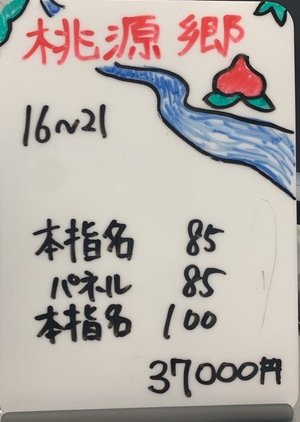 桃源郷
16~21
本指名 85
パネル 85
本指名 100
37000円